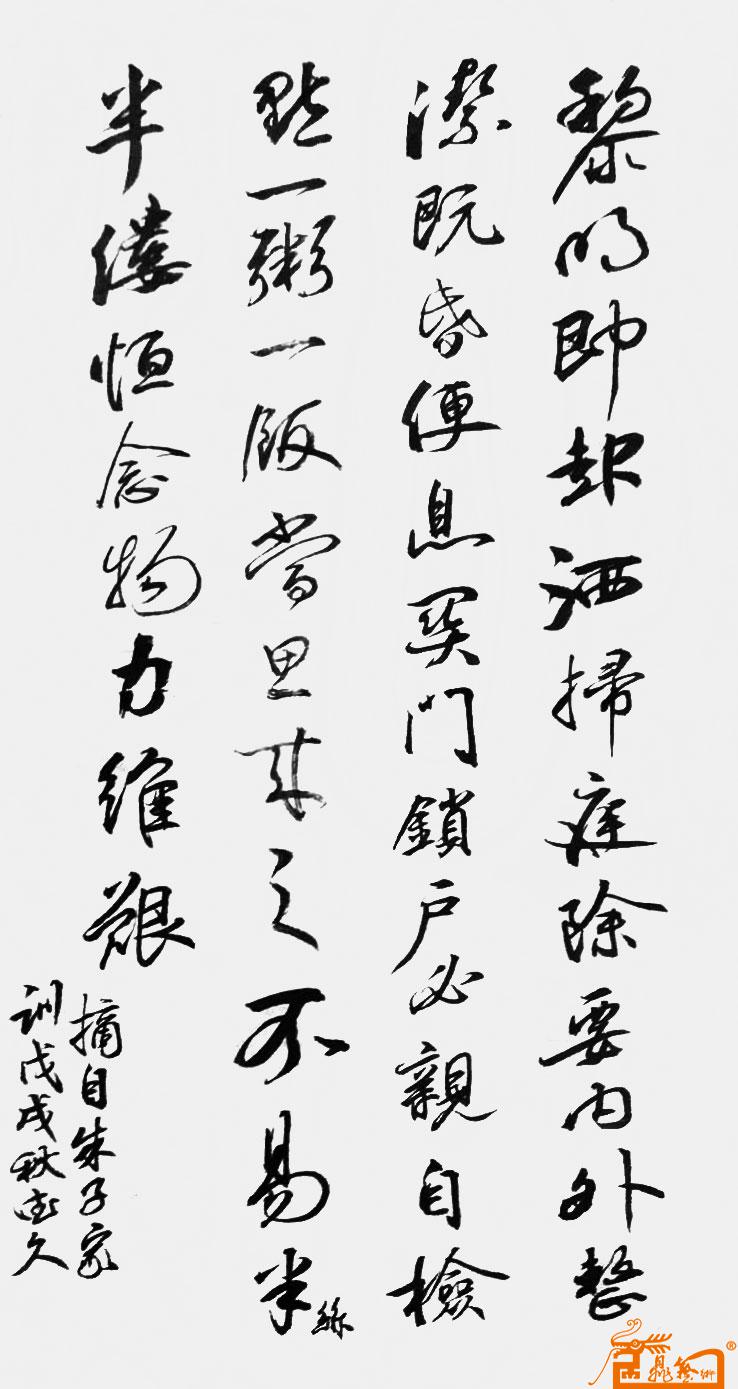 黎明即起洒掃庭除要内外整
潔既昏便息關門鎖户必親自檢
點一粥一飯當思來之不易半絲
半縷恒念物力維艱
摘自朱子家
訓戊戌秋久
藝術®